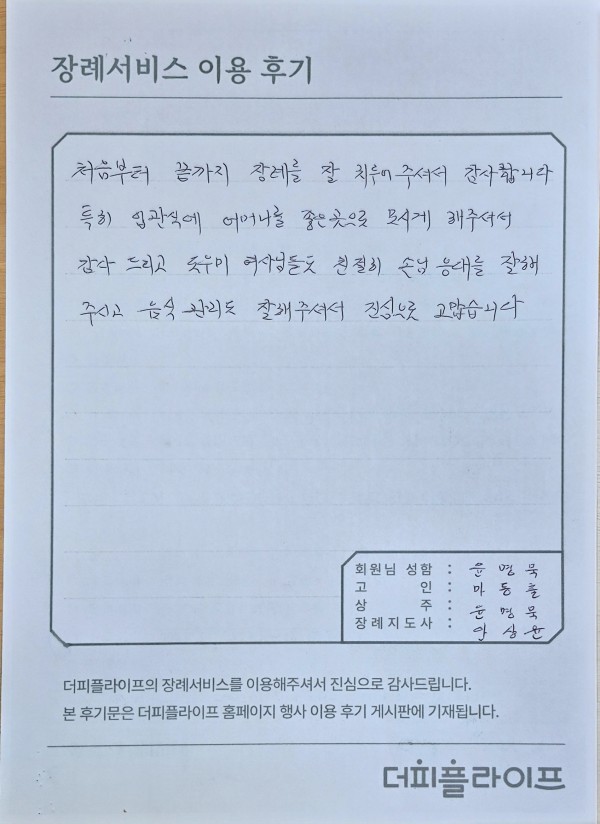 장례서비스 이용 후기
처음부터 끝까지 장례를 잘 치루어 주셔서 감사합니다
특히 입관식에 어머니를 좋은곳으로 모시게 해주셔서
감사 드리고 도우미 여사님들도 친절히 손님 응대를 잘해
주시고 음식 관리도 잘해주셔서 진심으로 고맙습니다
회원님 성함 : 윤명묵
고 인 : 마동
상 주 : 윤명묵
장례지도사 : 안상윤
더피플라이프의 장례서비스를 이용해주셔서 진심으로 감사드립니다.
본 후기문은 더피플라이프 홈페이지 행사 이용 후기 게시판에 기재됩니다.
더피플라이프